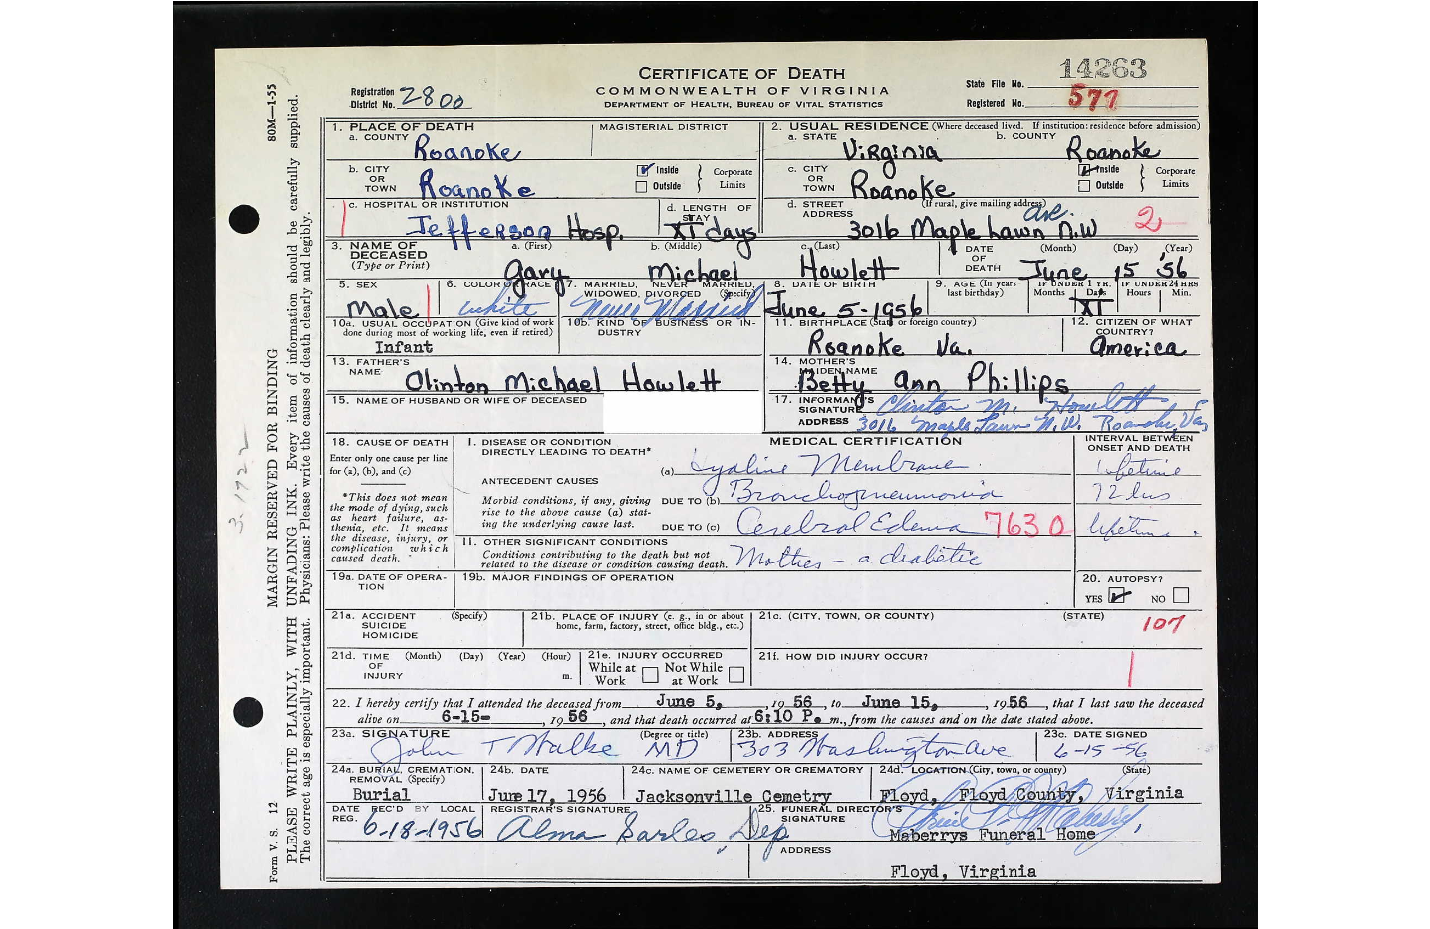 CERTIFICATE OF DEATH
COMMONWEALTH OF VIRGINIA
DEPARTMENT OF HEALTH, BUREAU OF VITAL STATISTICS
Registration District No. 2800
State File No. 14263
Registered No. 577
1. PLACE OF DEATH
a. COUNTY Roanoke
MAGISTERIAL DISTRICT
2. USUAL RESIDENCE (Where deceased lived. If institution: residence before admission)
a. STATE Virginia
b. COUNTY Roanoke
b. CITY OR TOWN Roanoke
Inside Outside Corporate Limits
c. CITY OR TOWN Roanoke
Inside Outside Corporate Limits
c. HOSPITAL OR INSTITUTION Jefferson Hosp.
d. LENGTH OF STAY XI days
d. STREET ADDRESS (If rural, give mailing address) 3016 Maple Lawn Ave. N.W
2
3. NAME OF DECEASED (Type or Print)
a. (First) Gary
b. (Middle) Michael
c. (Last) Howlett
4. DATE OF DEATH (Month) (Day) (Year) June 15 '56
5. SEX Male
6. COLOR OR RACE White
7. MARRIED, NEVER MARRIED, WIDOWED, DIVORCED (Specify) Never Married
8. DATE OF BIRTH June 5-1956
9. AGE (In years last birthday)
IF UNDER 1 YR. Months Days XI
IF UNDER 24 HRS Hours Min.
10a. USUAL OCCUPATION (Give kind of work done during most of working life, even if retired)
Infant
10b. KIND OF BUSINESS OR INDUSTRY
11. BIRTHPLACE (State or foreign country)
Roanoke Va.
12. CITIZEN OF WHAT COUNTRY?
America
13. FATHER'S NAME Clinton Michael Howlett
14. MOTHER'S MAIDEN NAME Betty Ann Phillips
15. NAME OF HUSBAND OR WIFE OF DECEASED
17. INFORMANT'S SIGNATURE Clinton M. Howlett
ADDRESS 3016 Maple Lawn N.W. Roanoke, Va
18. CAUSE OF DEATH
Enter only one cause per line for (a), (b), and (c)
*This does not mean the mode of dying, such as heart failure, asthenia, etc. It means the disease, injury, or complication which caused death.
MEDICAL CERTIFICATION
INTERVAL BETWEEN ONSET AND DEATH
I. DISEASE OR CONDITION DIRECTLY LEADING TO DEATH*
(a) Hyaline Membrane. Lifetime
ANTECEDENT CAUSES
Morbid conditions, if any, giving rise to the above cause (a) stating the underlying cause last.
DUE TO (b) Bronchopneumonia 72 hrs
DUE TO (c) Cerebral Edema 7630 lifetime.
II. OTHER SIGNIFICANT CONDITIONS
Conditions contributing to the death but not related to the disease or condition causing death.
Mother - a diabetic
19a. DATE OF OPERATION
19b. MAJOR FINDINGS OF OPERATION
20. AUTOPSY?
YES NO
21a. ACCIDENT SUICIDE HOMICIDE (Specify)
21b. PLACE OF INJURY (e. g., in or about home, farm, factory, street, office bldg., etc.)
21c. (CITY, TOWN, OR COUNTY) (STATE)
107
21d. TIME OF INJURY (Month) (Day) (Year) (Hour) m.
21e. INJURY OCCURRED
While at Work Not While at Work
21f. HOW DID INJURY OCCUR?
22. I hereby certify that I attended the deceased from June 5, 1956, to June 15, 1956, that I last saw the deceased
alive on 6-15-, 1956, and that death occurred at 6:10 P. m., from the causes and on the date stated above.
23a. SIGNATURE (Degree or title) John T Walke MD
23b. ADDRESS 303 Washington Ave
23c. DATE SIGNED 6-15-56
24a. BURIAL, CREMATION, REMOVAL (Specify)
Burial
24b. DATE
June 17, 1956
24c. NAME OF CEMETERY OR CREMATORY
Jacksonville Cemetry
24d. LOCATION (City, town, or county) (State)
Floyd, Floyd County, Virginia
DATE REC'D BY LOCAL REG. 6-18-1956
REGISTRAR'S SIGNATURE Alma Sarles, Dep.
25. FUNERAL DIRECTOR'S SIGNATURE
Maberrys Funeral Home
ADDRESS
Floyd, Virginia
80M—1-55
MARGIN RESERVED FOR BINDING
PLEASE WRITE PLAINLY, WITH UNFADING INK. Every item of information should be carefully supplied.
The correct age is especially important. Physicians: Please write the causes of death clearly and legibly.
Form V. S. 12